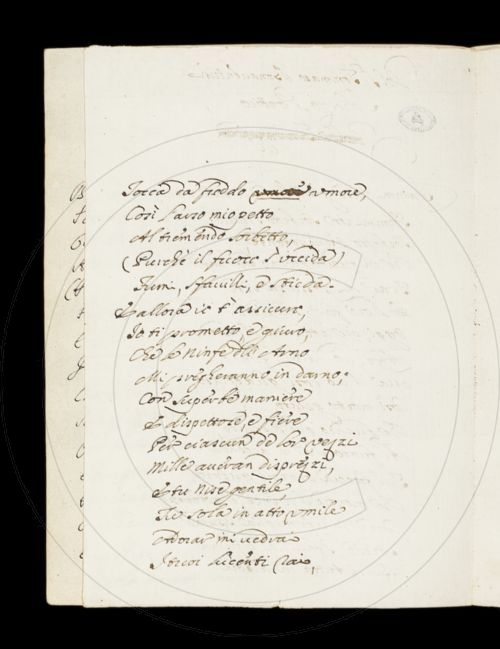 Tocca da freddo umore,
Così l'arso mio petto
Al tremendo sorbetto,
(Purchè il fuoco s'uccida)
Fumi, sfavilli, e strida.
E allora io t'assicuro,
Io ti prometto, e giuro,
Che le Ninfe dell'Arno
Mi pregheranno in darno;
Con superbe maniere
E dispettose, e fiere
Per ciascun de lor vezzi
Mille averan disprezzi,
E tu Nise gentile,
Tu sola in atto umile
Adorar mi vedrai
I tuoi lucenti rai,